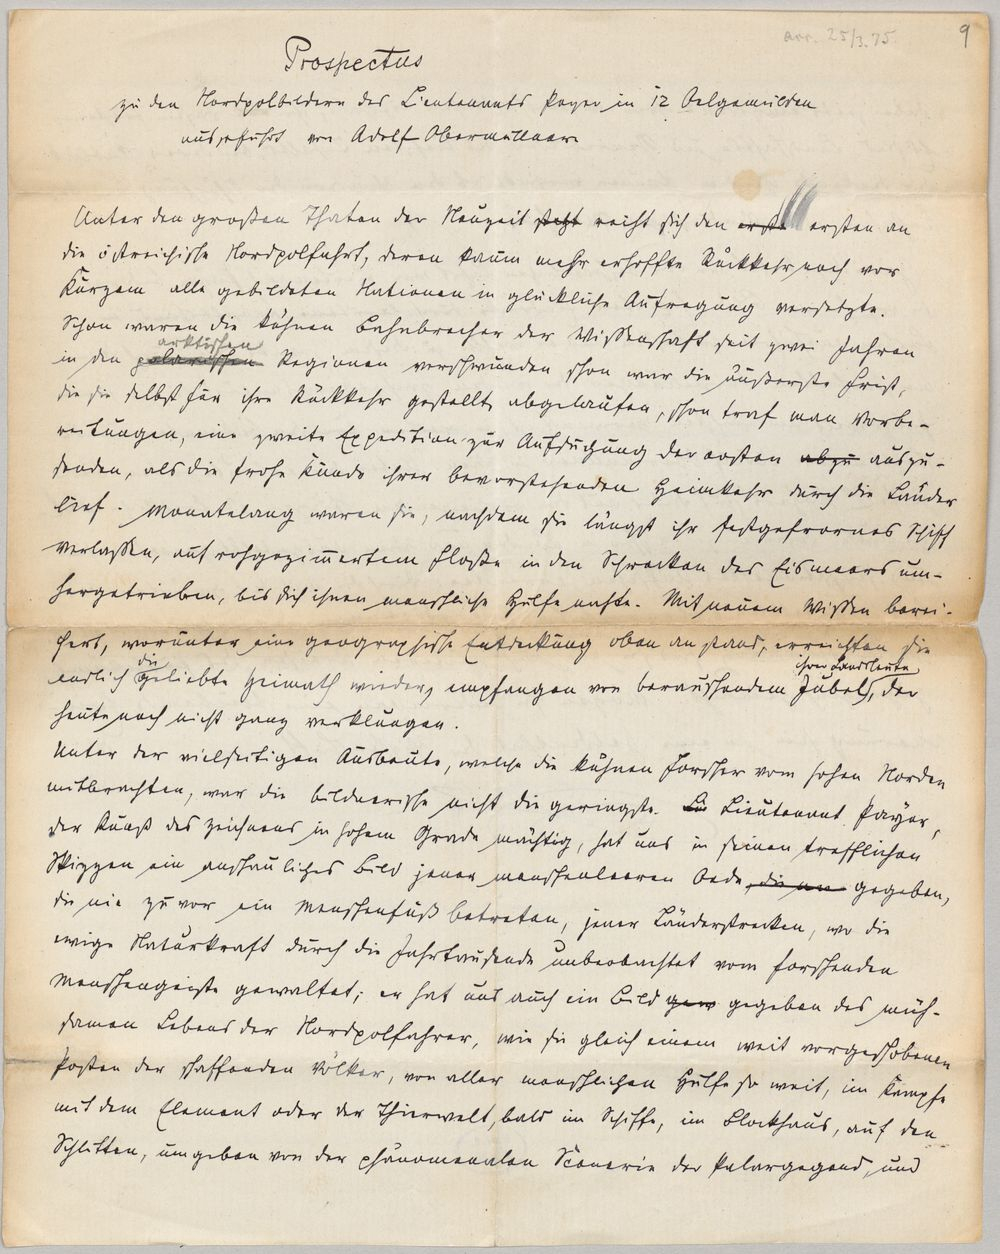 arr. 25/3.75.
9
Prospectus
zu den Nordpolbildern des Lieutenants Payer in 12 Oelgemälden
ausgeführt von Adolf Obermüllner.
Unter den großen Thaten der Neuzeit steht reiht sich den erste ersten an
die östreichische Nordpolfahrt, deren kaum mehr erhoffte Rückkehr noch vor
Kurzem alle gebildeten Nationen in glückliche Aufregung versetzte.
Schon waren die kühnen Bahnbrecher der Wissenschaft seit zwei Jahren
arktischen
in den polarischen Regionen verschwunden schon war die äußerste Frist,
die sie selbst für ihre Rückkehr gestellt, abgelaufen, schon traf man Vorbe-
reitungen, eine zweite Expedition zur Aufsuchung der ersten abzu auszu-
senden, als die frohe Kunde ihrer bevorstehenden Heimkehr durch die Länder
lief. Monatelang waren sie, nachdem sie längst ihr festgefrornes Schiff
verlaßen, auf rohgezimmertem Floße in den Schrecken des Eismeers um-
hergetrieben, bis sich ihnen menschliche Hülfe nahte. Mit neuem Wißen berei-
chert, worunter eine geographische Entdeckung oben an stand, erreichten sie
die ihrer Landsleute
endlich geliebte Heimath wieder, empfangen von berauschendem Jubel, der
heute noch nicht ganz verklungen.
Unter der vielseitigen Ausbeute, welche die kühnen Forscher vom hohen Norden
mitbrachten, war die bildnerische nicht die geringste. Li Lieutenant Payer,
der Kunst des Zeichnens in hohem Grade mächtig, hat uns in seinen trefflichen
Skizzen ein anschauliches Bild jener menschenleeren Oede, die nie gegeben,
die nie zuvor ein Menschenfuß betreten, jener Länderstrecken, wo die
ewige Naturkraft durch die Jahrtausende unbeobachtet vom forschenden
Menschengeiste gewaltet; er hat uns auch ein Bild gew gegeben des müh-
samen Lebens der Nordpolfahrer, wie sie gleich einem weit vorgeschobenen
Posten der schaffenden Völker, von aller menschlichen Hülfe so weit, im Kampfe
mit dem Element oder der Thierwelt, bald im Schiffe, im Blockhaus, auf den
Schlitten, umgeben von der phänomenalen Scenerie der Polargegend, und